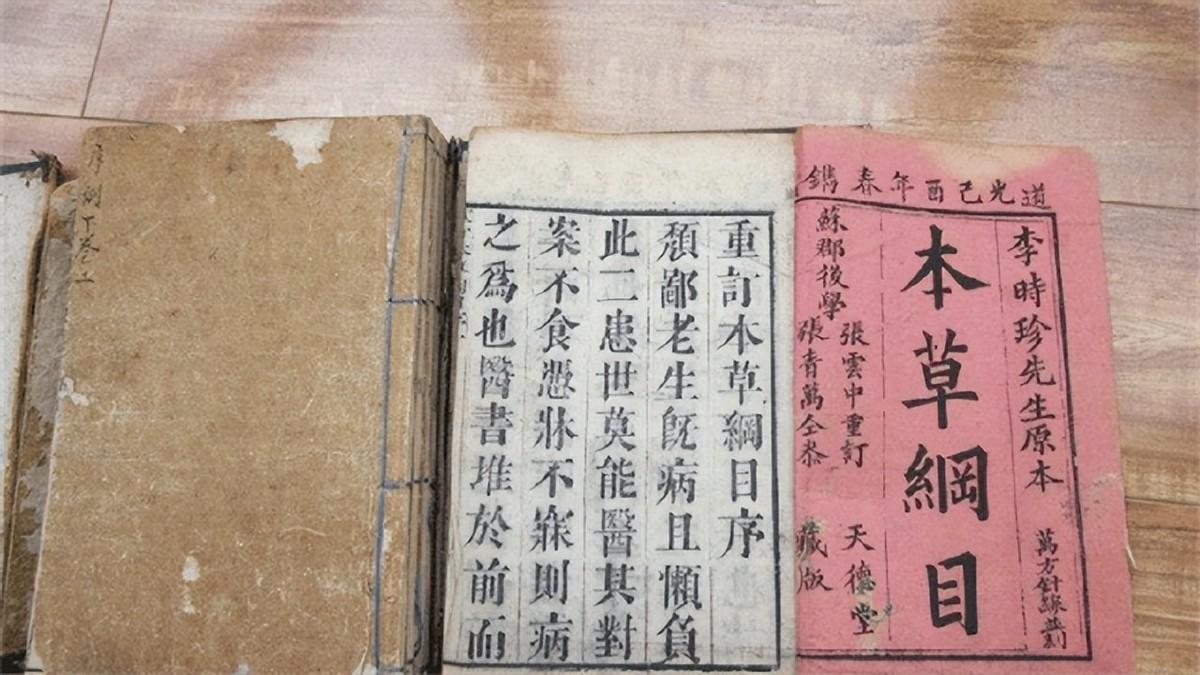 道光己酉年春鐫
李時珍先生原本
萬方針線並刻
本草綱目
張雲中重訂
蘇郡後學
張青萬仝叅
天德堂
藏版
重訂本草綱目序
頽鄙老生既病且懶負
此二患世莫能醫其對
案不食憑牀不寐則病
之為也醫書堆於前而
序例下卷二